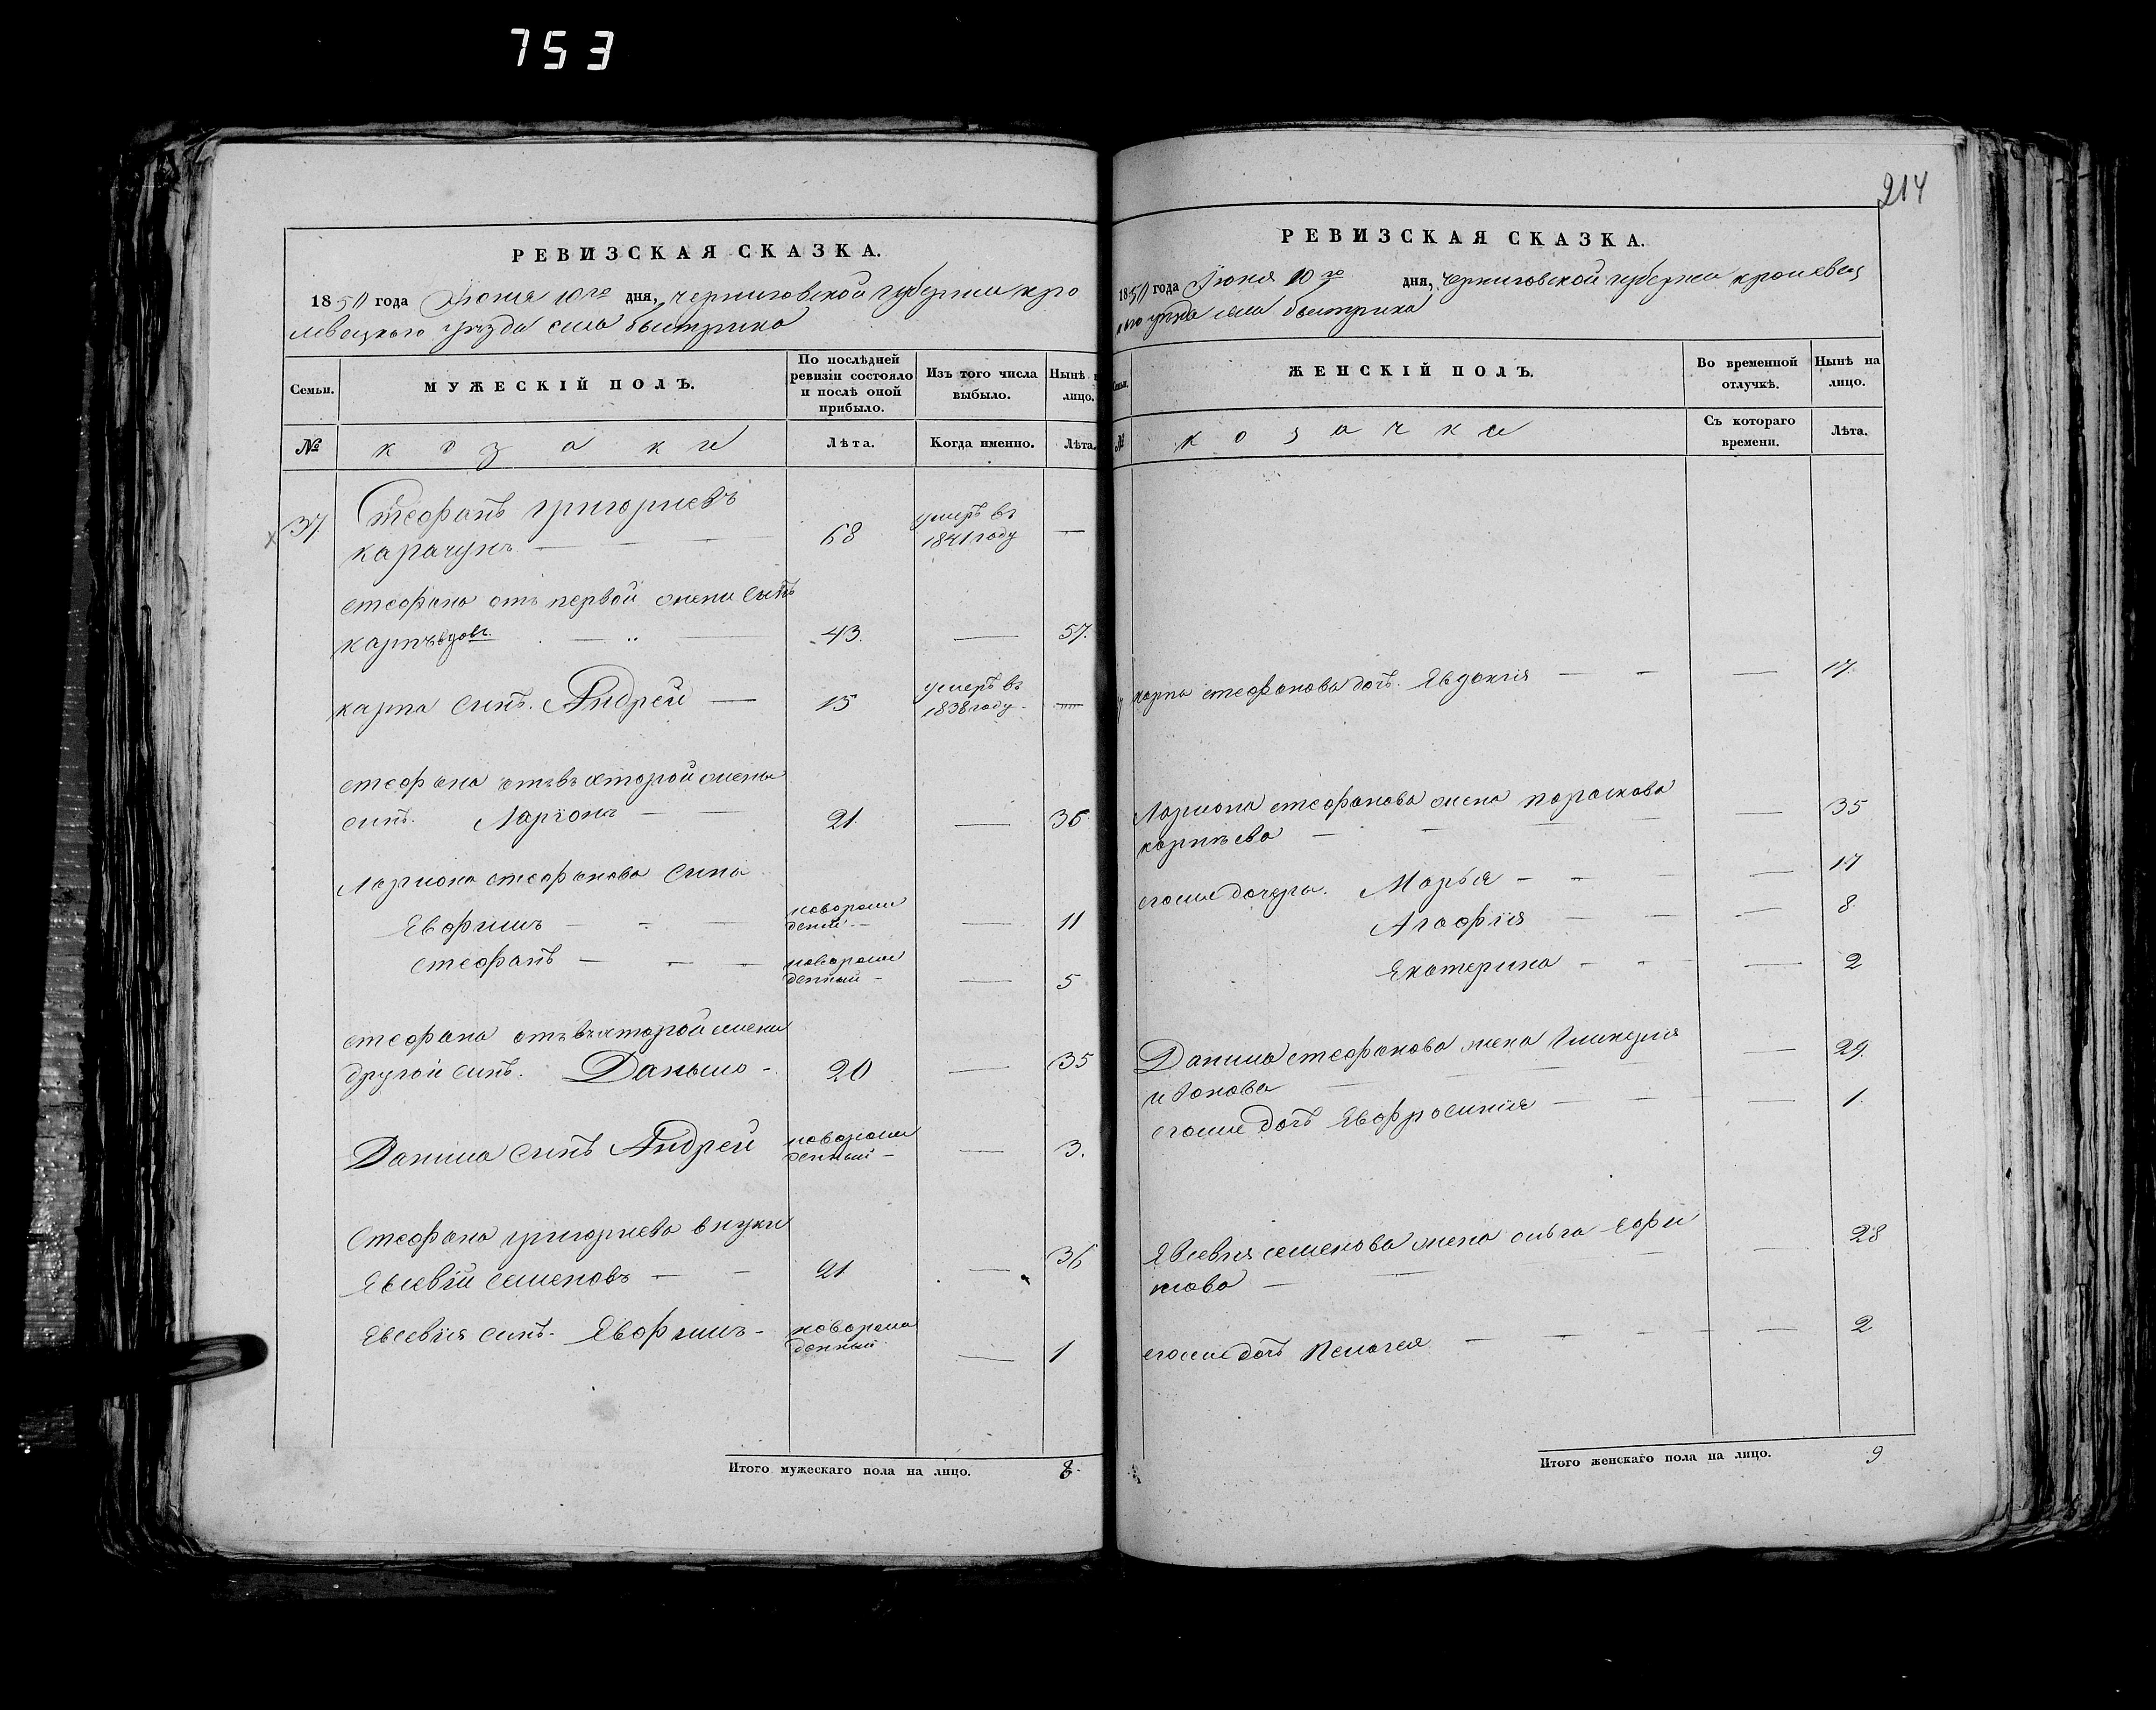 753
РЕВИЗСКАЯ СКАЗКА.
1850 года Июня 10го дня, Черниговской губернии кро
левецкого уезда села быстрика
Семьи.
МУЖЕСКІЙ ПОЛЪ.
По послѣдней ревизіи состояло и послѣ оной прибыло.
Изъ того числа выбыло.
Нынѣ
лицо.
№
козаки
Лѣта.
Когда именно.
Лѣта.
37
Стефанъ григориевъ
карачунъ — 68 умеръ въ 1841 году —
стефана отъ первой жени синъ
карпъ вдовъ. — 43. — 57.
карпа синъ. Андрей — 15 умеръ въ 1838 году —
стефана отъ въхторой жены
синъ. Ларіонъ — 21. — 36
Лариона стефанова сины
Евфимъ — новорож денй — 11
стефанъ — новорож денный — 5
стефана отъ въхторой жени
другой синъ. Данило — 20 — 35
Данила синъ Андрей новорож денный — 3.
Стефана григориева внуки
Евсевій семеновъ — 21 — 36
Евсевія синъ. Евфимъ — новорож денный — 1
Итого мужескаго пола на лицо. 8.
214
РЕВИЗСКАЯ СКАЗКА.
1850 года Июня 10го дня, Черниговской губернии кролевец
кого уезда села быстрика
ЖЕНСКІЙ ПОЛЪ.
Во временной отлучкѣ.
Нынѣ на лицо.
№
козачки
Съ котораго времени.
Лѣта.
карпа стефанова дочъ. Евдокія — 17.
Лариона стефанова жена параскова
карпѣева — 35
егоже дочери. Марья — 17
Агафія — 8
Екатерина — 2
Данила стефанова жена Гликерия
— 29.
егоже дочъ Евфросинія — 1.
Евсевия семенова жена ольга Ефи
мова — 28
егоже дочъ Пелагея — 2
Итого женскаго пола на лицо. 9